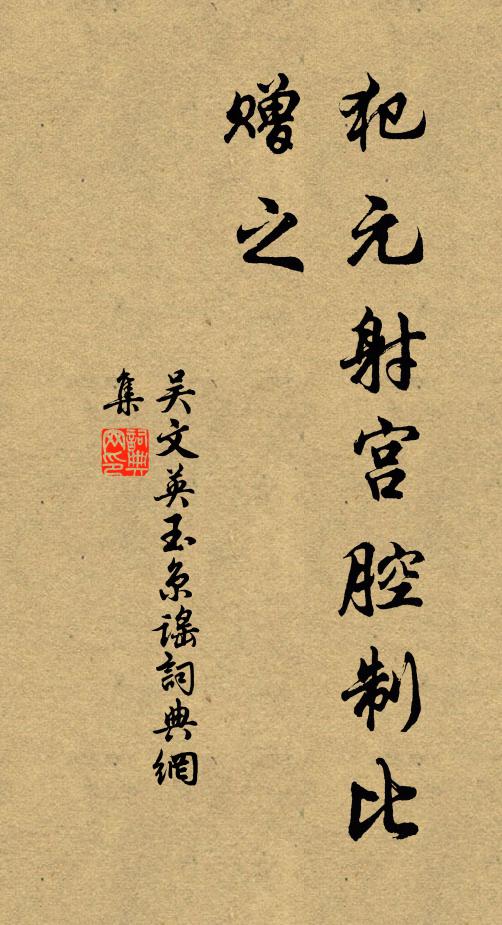 犯无射宫腔制比
赠之
吴文英玉京谣詞典網
集
詞典网印